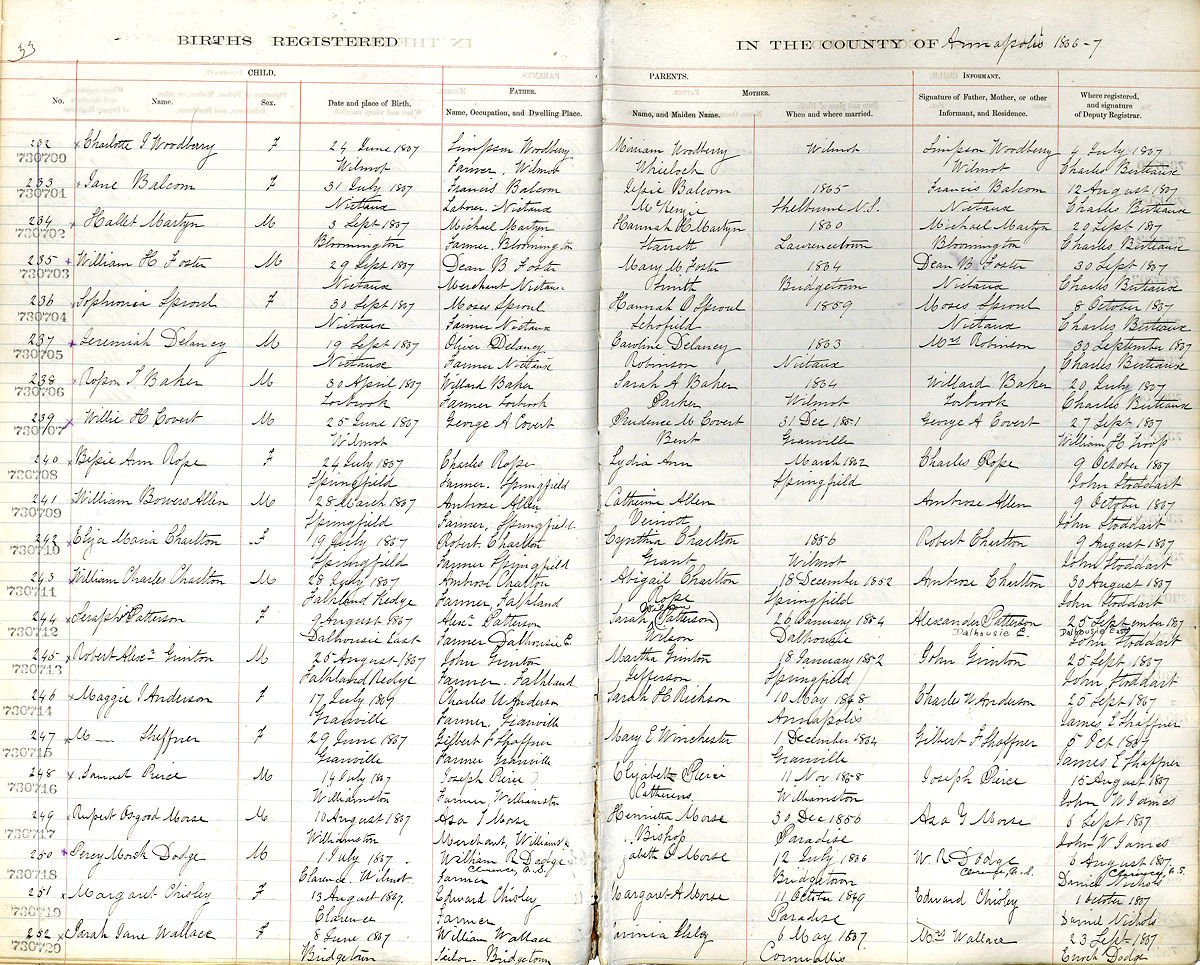 33
BIRTHS REGISTERED
IN THE COUNTY OF Annapolis 1866-7
CHILD. PARENTS. INFORMANT.
FATHER. MOTHER.
No. Name. Sex. Date and place of Birth. Name, Occupation, and Dwelling Place. Name, and Maiden Name. When and where married. Signature of Father, Mother, or other Informant, and Residence. Where registered, and signature of Deputy Registrar.
232 Charlotte J Woodberry F 24 June 1867 Simpson Woodbery Miriam Woodberry Wilmot Simpson Woodbery 4 July 1867
730700 Wilmot Farmer, Wilmot Whielock Wilmot Charles Berteaux
233 Jane Balcom F 31 July 1867 Francis Balcom Jessie Balcom 1865 Francis Balcom 12 August 1867
730701 Nictaux Laborer, Nictaux McKenzie Shelburne N.S. Nictaux Charles Berteaux
234 Hallet Martyn M 3 Sept 1867 Michael Martyn Hannah H Martyn 1860 Michael Martyn 20 Sept 1867
730702 Bloomington Farmer, Bloomington Starratt Laurencetown Bloomington Charles Berteaux
235 William H Foster M 29 Sept 1867 Dean B Foster Mary M Foster 1864 Dean B Foster 30 Sept 1867
730703 Nictaux Merchant Nictaux Smith Bridgetown Nictaux Charles Berteaux
236 Sophronia Sproul F 30 Sept 1867 Moses Sproul Hannah O Sproul 1859 Moses Sproul 8 October 1867
730704 Nictaux Farmer Nictaux Schofield Nictaux Charles Berteaux
237 Jeremiah Delancy M 19 Sept 1867 Oliver Delancy Caroline Delancy 1863 Mrs Robinson 30 September 1867
730705 Nictaux Farmer Nictaux Robinson Nictaux Charles Berteaux
238 Baker M 30 April 1867 Willard Baker Sarah A Baker 1864 Willard Baker 20 July 1867
730706 Torbrook Farmer Torbrook Parker Wilmot Torbrook Charles Berteaux
239 Willie H Covert M 25 June 1867 George A Covert Prudence M Covert 31 Dec 1851 George A Covert 27 Sept 1867
730707 Wilmot Bent Granville William H Troop
240 Bessie Ann Rope F 24 July 1867 Charles Rope Lydia Ann March 1862 Charles Rope 9 October 1867
730708 Springfield Farmer, Springfield Springfield John Stoddart
241 William Bowers Allen M 28 March 1867 Ambrose Allen Catherine Allen Ambrose Allen 9 October 1867
730709 Springfield Farmer, Springfield John Stoddart
242 Eliza Maria Charlton F 19 July 1867 Robert Charlton Cynthia Charlton 1856 Robert Charlton 9 August 1867
730710 Springfield Farmer Springfield Grant Wilmot John Stoddart
243 William Charles Charlton M 28 July 1867 Ambrose Charlton Abigail Charlton 18 December 1852 Ambrose Charlton 30 August 1867
730711 Falkland Redge Farmer, Falkland Rope Springfield John Stoddart
244 Patterson F 9 August 1867 Alexr Patterson Sarah Wilson (Patterson) 26 January 1854 Alexander Patterson 25 September 1867
730712 Dalhousie East Farmer Dalhousie E Wilson Dalhousie Dalhousie E. Dalhousie East John Stoddart
245 Robert Alexr Ginton M 25 August 1867 John Ginton Martha Ginton 18 January 1852 John Ginton 25 Sept 1867
730713 Falkland Redge Farmer, Falkland Jefferson Springfield John Stoddart
246 Maggie J Anderson F 17 July 1869 Charles W Anderson Sarah H Rickson 10 May 1848 Charles W Anderson 25 Sept 1867
730714 Granville Farmer, Granville Annapolis James E Shaffner
247 M Sheffner F 29 June 1867 Gilbert F Shaffner Mary E Winchester 1 December 1864 Gilbert F Shaffner 5 Oct 1867
730715 Granville Farmer Granville Granville James E Shaffner
248 Samuel Pierce M 14 July 1867 Joseph Peirce Elizabeth Peirce 11 Nov 1858 Joseph Pierce 15 August 1867
730716 Williamston Farmer, Williamston Williamston John W James
249 Rupert Osgood Morse M 10 August 1867 Asa G Morse Henrietta Morse 30 Dec 1856 Asa G Morse 6 Sept 1867
730717 Williamston Merchant, Williams Bishop Paradise John W James
250 Percy Dodge M 1 July 1867 William R Dodge zabeth O Morse 12 July 1866 W. R Dodge 6 August 1867
730718 Clarence Wilmot Clarence, N.S. Farmer Bridgetown Clarence, N.S. Clarence, N.S. Daniel Nichols
251 Margaret Chisley F 13 August 1867 Edward Chisley Margaret A Morse 11 October 1849 Edward Chisley 1 October 1867
730719 Clarence Farmer Paradise Daniel Nichols
252 Sarah Jane Wallace F 8 June 1867 William Wallace 6 May 1867 Mrs Wallace 23 Sept 1867
730720 Bridgetown Tailor Bridgetown Cornwallis Enoch Dodge